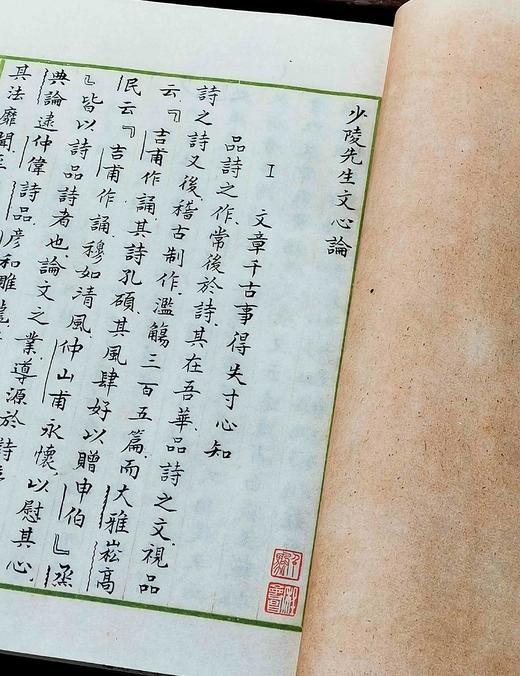 少陵先生文心論
I 文章千古事得失寸心知
品詩之作、常後於詩、其在吾華、品詩之文、視品
詩之詩又後、稽古制作、濫觴三百五篇、而大雅崧高
云『吉甫作誦、其詩孔碩、其風肆好、以贈申伯』烝
民云『吉甫作誦、穆如清風、仲山甫永懷、以慰其心
』皆以詩品詩者也、論文之業、導源於詩
典論逮仲偉詩品、彥和雕
其法靡聞